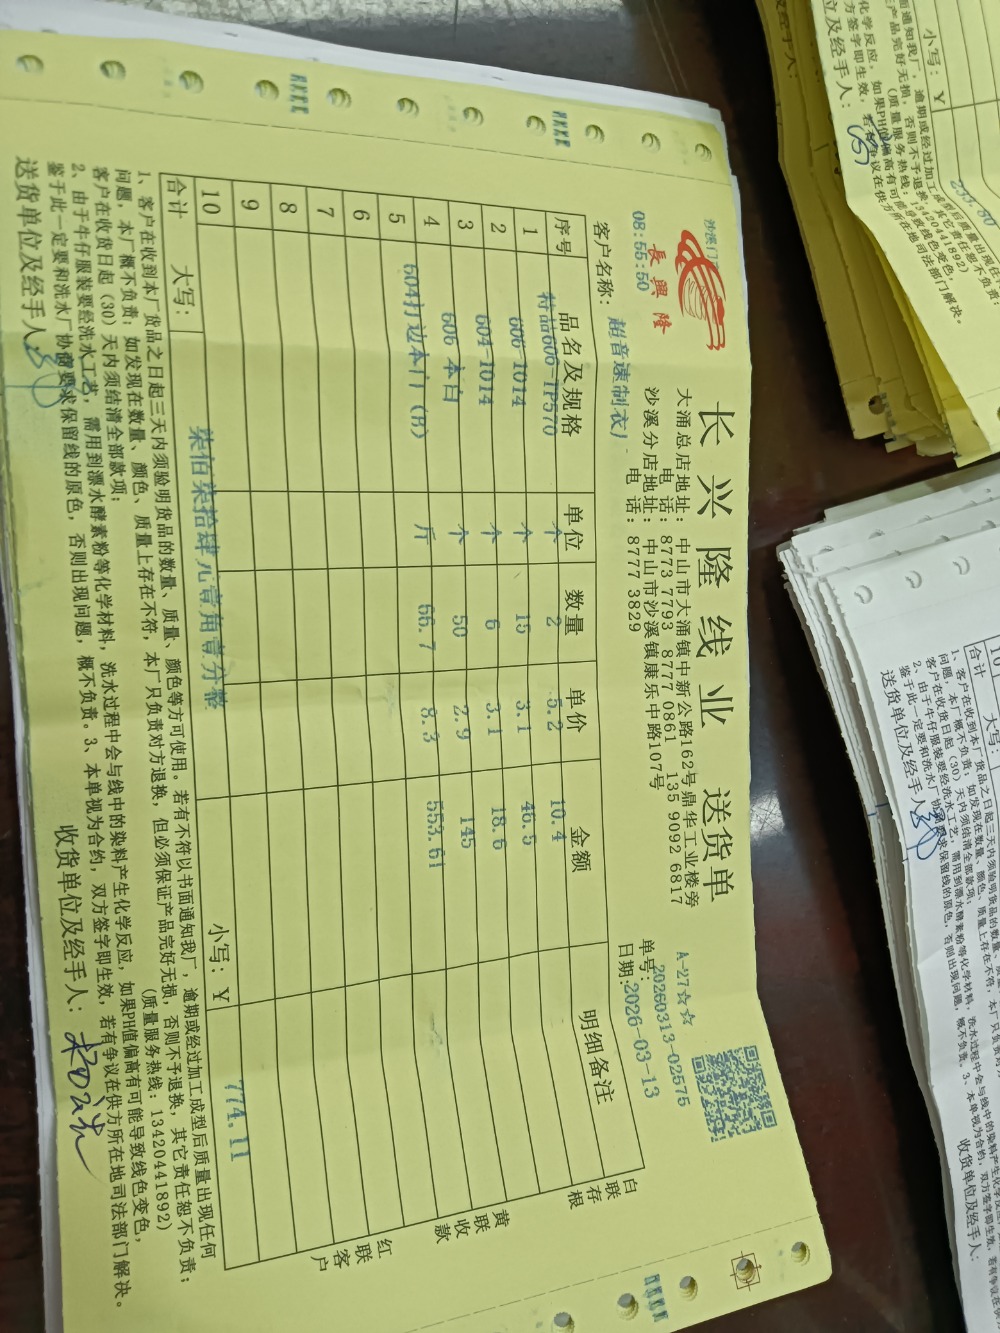 长兴隆线业 送货单
沙溪门
長興隆
08:55:50
大涌总店地址：中山市大涌镇中新公路162号鼎华工业楼旁
电话：8773 7793 8777 0861 135 9092 6817
沙溪分店地址：中山市沙溪镇康乐中路107号
电话：8777 3829
A-27☆☆
单号：20260313-02575
日期：2026-03-13
客户名称：超音速制衣厂
序号 品名及规格 单位 数量 单价 金额 明细备注
1 特品606-TP570 个 2 5.2 10.4
2 606-1014 个 15 3.1 46.5
3 604-1014 个 6 3.1 18.6
4 606 本白 个 50 2.9 145
5 604打边本门（B） 斤 66.7 8.3 553.61
6
7
8
9
10
合计 大写：柒佰柒拾肆元壹角壹分整 小写：￥ 774.11
白联存根
黄联收款
红联客户
1、客户在收到本厂货品之日起三天内须验明货品的数量、质量、颜色等方可使用。若有不符以书面通知我厂，逾期或经过加工成型后质量出现任何
问题，本厂概不负责；如发现在数量、颜色、质量上存在不符，本厂只负责对方退换，但必须保证产品完好无损，否则不予退换，其它责任恕不负责；
客户在收货日起（30）天内须结清全部款项；（质量服务热线：13420441892）
2、由于牛仔服装要经洗水工艺，需用到漂水酵素粉等化学材料，洗水过程中会与线中的染料产生化学反应，如果PH值偏高有可能导致线色变色，
鉴于此一定要和洗水厂协商要求保留线的原色，否则出现问题，概不负责。3、本单视为合约，双方签字即生效，若有争议在供方所在地司法部门解决。
送货单位及经手人：
收货单位及经手人：
小写：￥ 233.80
10
合计 大写：
送货单位及经手人：
收货单位及经手人：